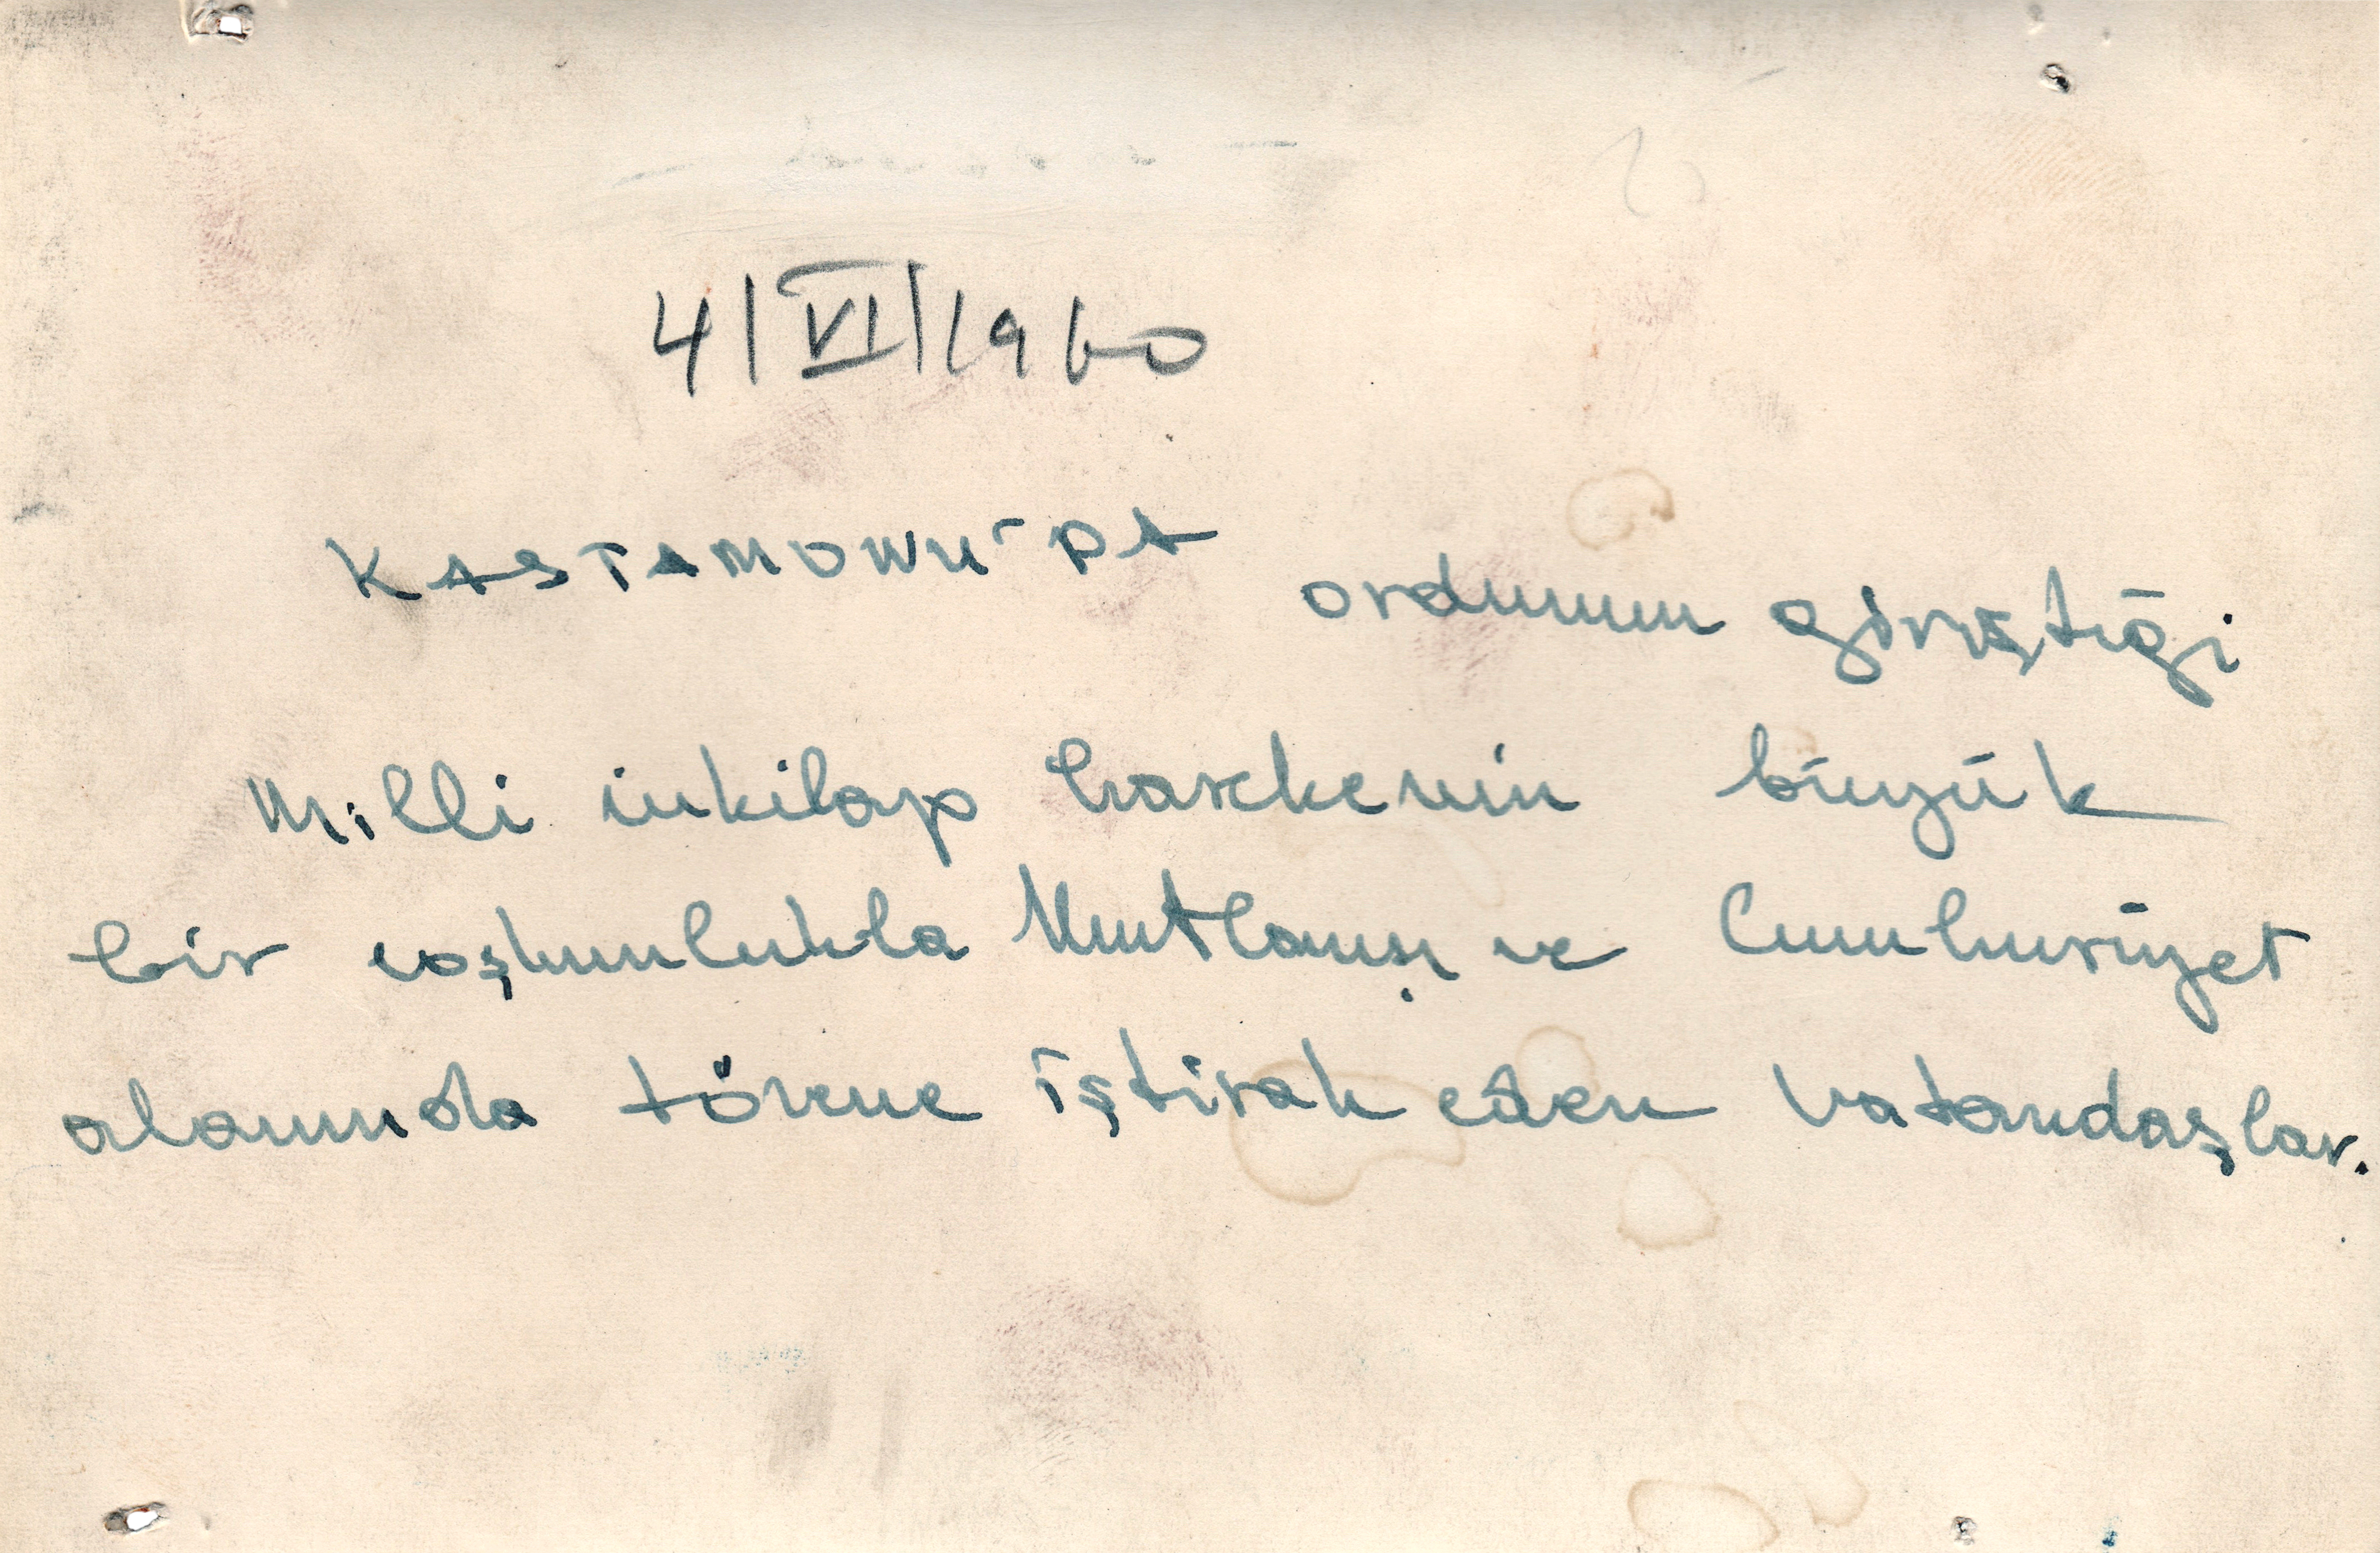 4/VI/1960
KASTAMONU'DA ordunun giriştiği
Milli inkilap hareketinin büyük
bir coşkunlukla kutlanışı ve Cumhuriyet
alanında törene iştirak eden vatandaşlar.